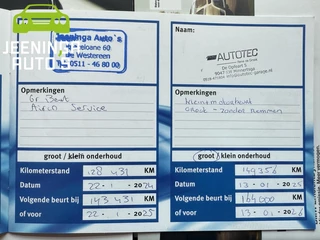 JEENINGA
AUTO'S
Jeeninga Auto's
loane 60
De Westereen
Tel. 0511 - 46 80 00
Opmerkingen
Gr Beurt
Airco Service
groot / klein onderhoud
Kilometerstand 128 431 KM
Datum 22 - 1 - 2024
Volgende beurt bij 143 431 KM
of voor 22 - 1 - 2025
Naam:
AUTOTEC
Opmerkingen
groot / klein onderhoud
Kilometerstand 149356 KM
Datum 13 - 01 - 2025
Volgende beurt bij 164000 KM
of voor 13 - 01 - 2026